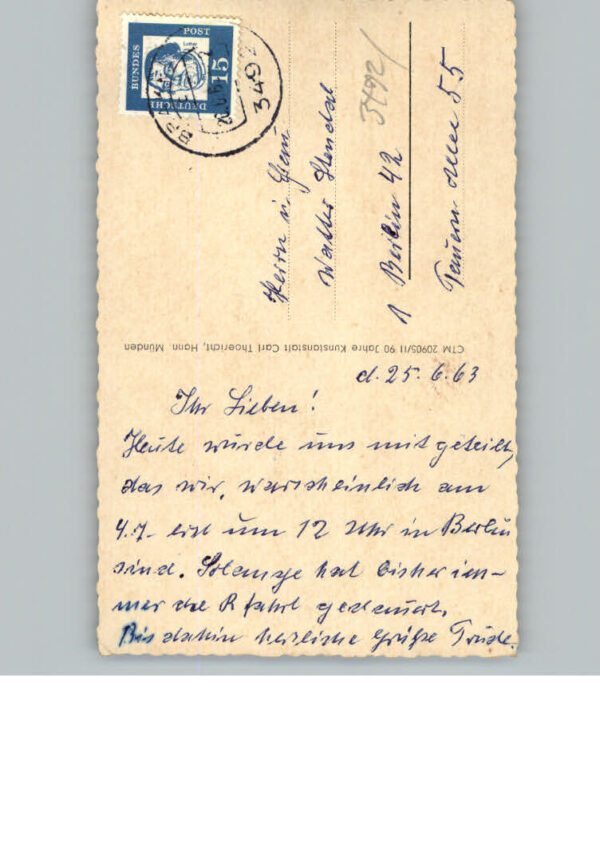 DEUTSCHE
BUNDES
POST
15
Luther
3492
3492/
Herrn u. Frau
Walter Stendal
1 Berlin 42
Tauern Allee 55
CTM 20905/II 90 Jahre Kunstanstalt Carl Thoericht, Hann. Münden
d. 25.6.63
Ihr Lieben!
Heute wurde uns mit geteilt,
das wir, warscheinlich am
4.7. erst um 12 Uhr in Berlin
sind. Solange hat bisher im-
mer die R fahrt gedauert.
Bis dahin herzliche Grüße Trude.